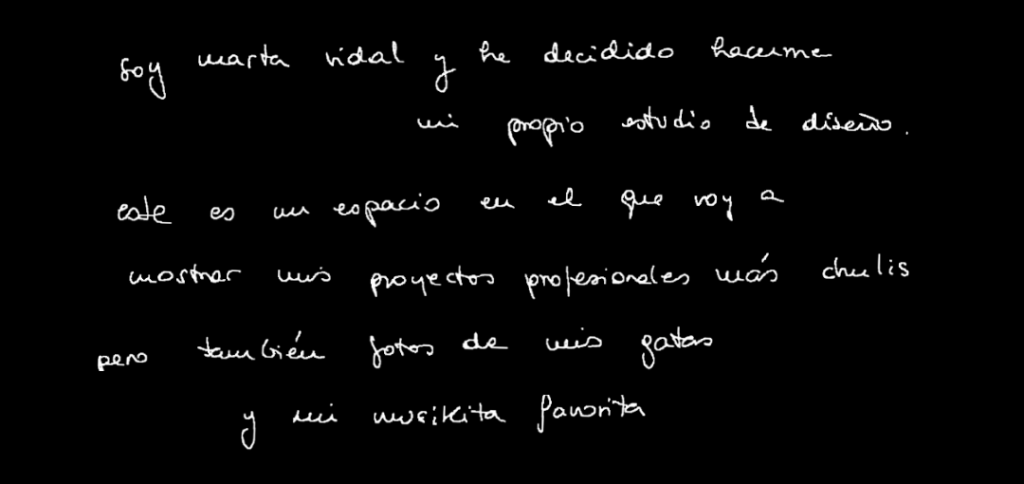 soy marta vidal y he decidido hacerme
mi propio estudio de diseño.
este es un espacio en el que voy a
mostrar mis proyectos profesionales más chulis
pero también fotos de mis gatas
y mi musikita favorita